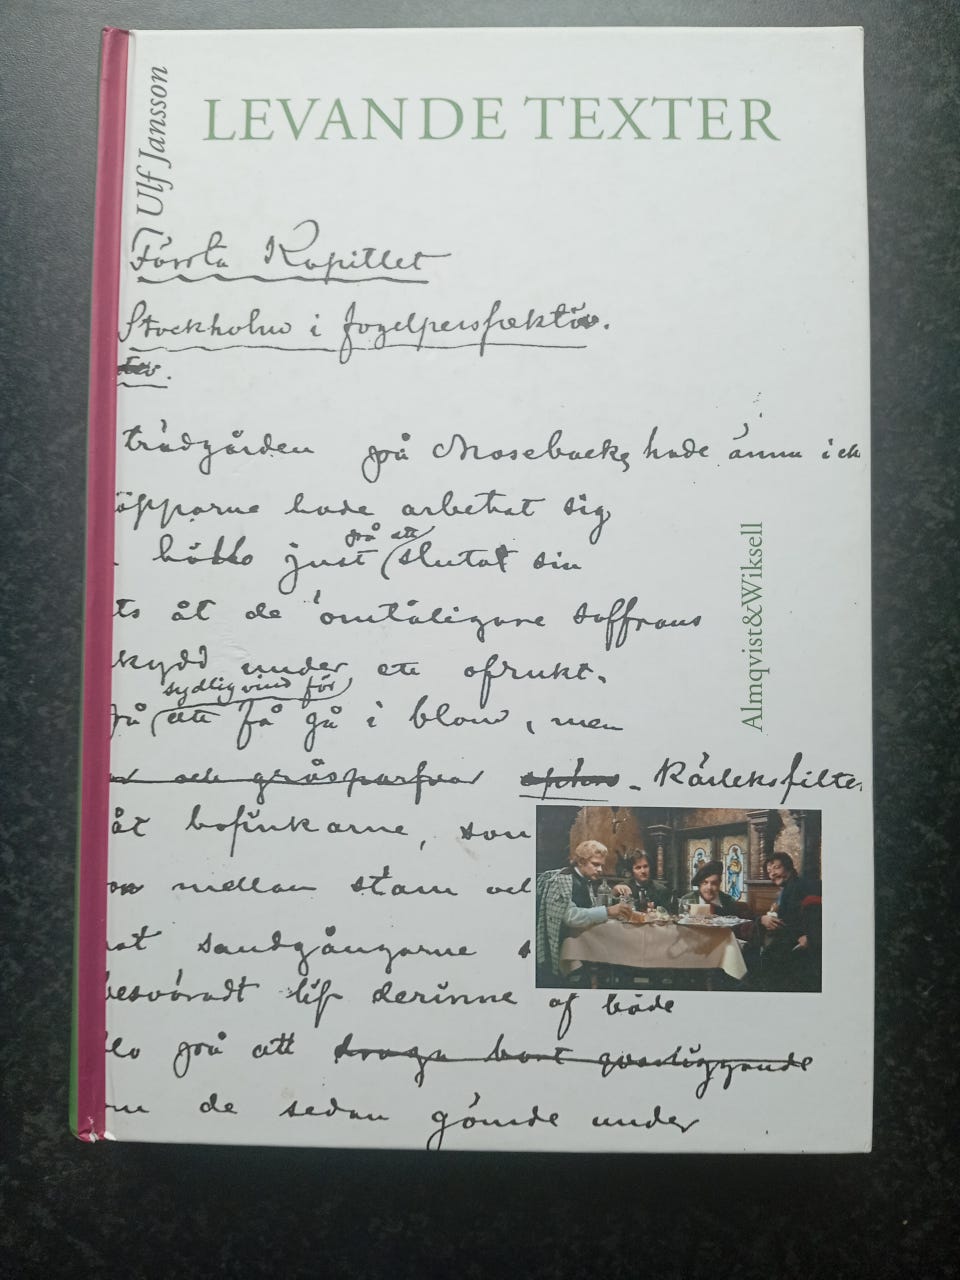 Ulf Jansson
LEVANDE TEXTER
Första Kapitlet
Stockholm i fogelperspektiv.
trädgården på Mosebacke hade ännu i
öpparne hade arbetat sig
på att
höllo just slutat sin
ts åt de ömtåligare saffrans
kydd under ett ofrukt.
sydlig vind för
på att få gå i blom, men
och gråsparfvar Kärleksfilte
åt bofinkarne, som
mellan stam och
at sandgångarne s
besväradt lif derinne af både
llo på att draga bort qvarliggande
m de sedan gömde under
Almqvist&Wiksell